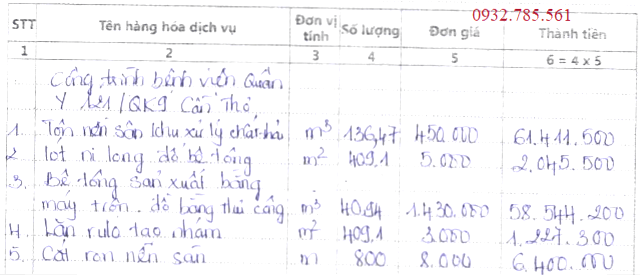 0932.785.561
STT Tên hàng hóa dịch vụ Đơn vị tính Số lượng Đơn giá Thành tiền
1 2 3 4 5 6 = 4 x 5
Công trình bệnh viện Quân
Y 121/QK9 Cần Thơ
1. Tôn nền sân khu xử lý chất thải m³ 136,47 450.000 61.411.500
2. lót ni lông đổ bê tông m² 409.1 5.000 2.045.500
3. Bê tông sản xuất bằng
máy trộn. đổ bằng thủ công m³ 40.94 1.430.000 58.544.200
4. Lăn rulo tạo nhám m² 409.1 3.000 1.227.300
5. Cắt ron nền sân m 800 8.000 6.400.000